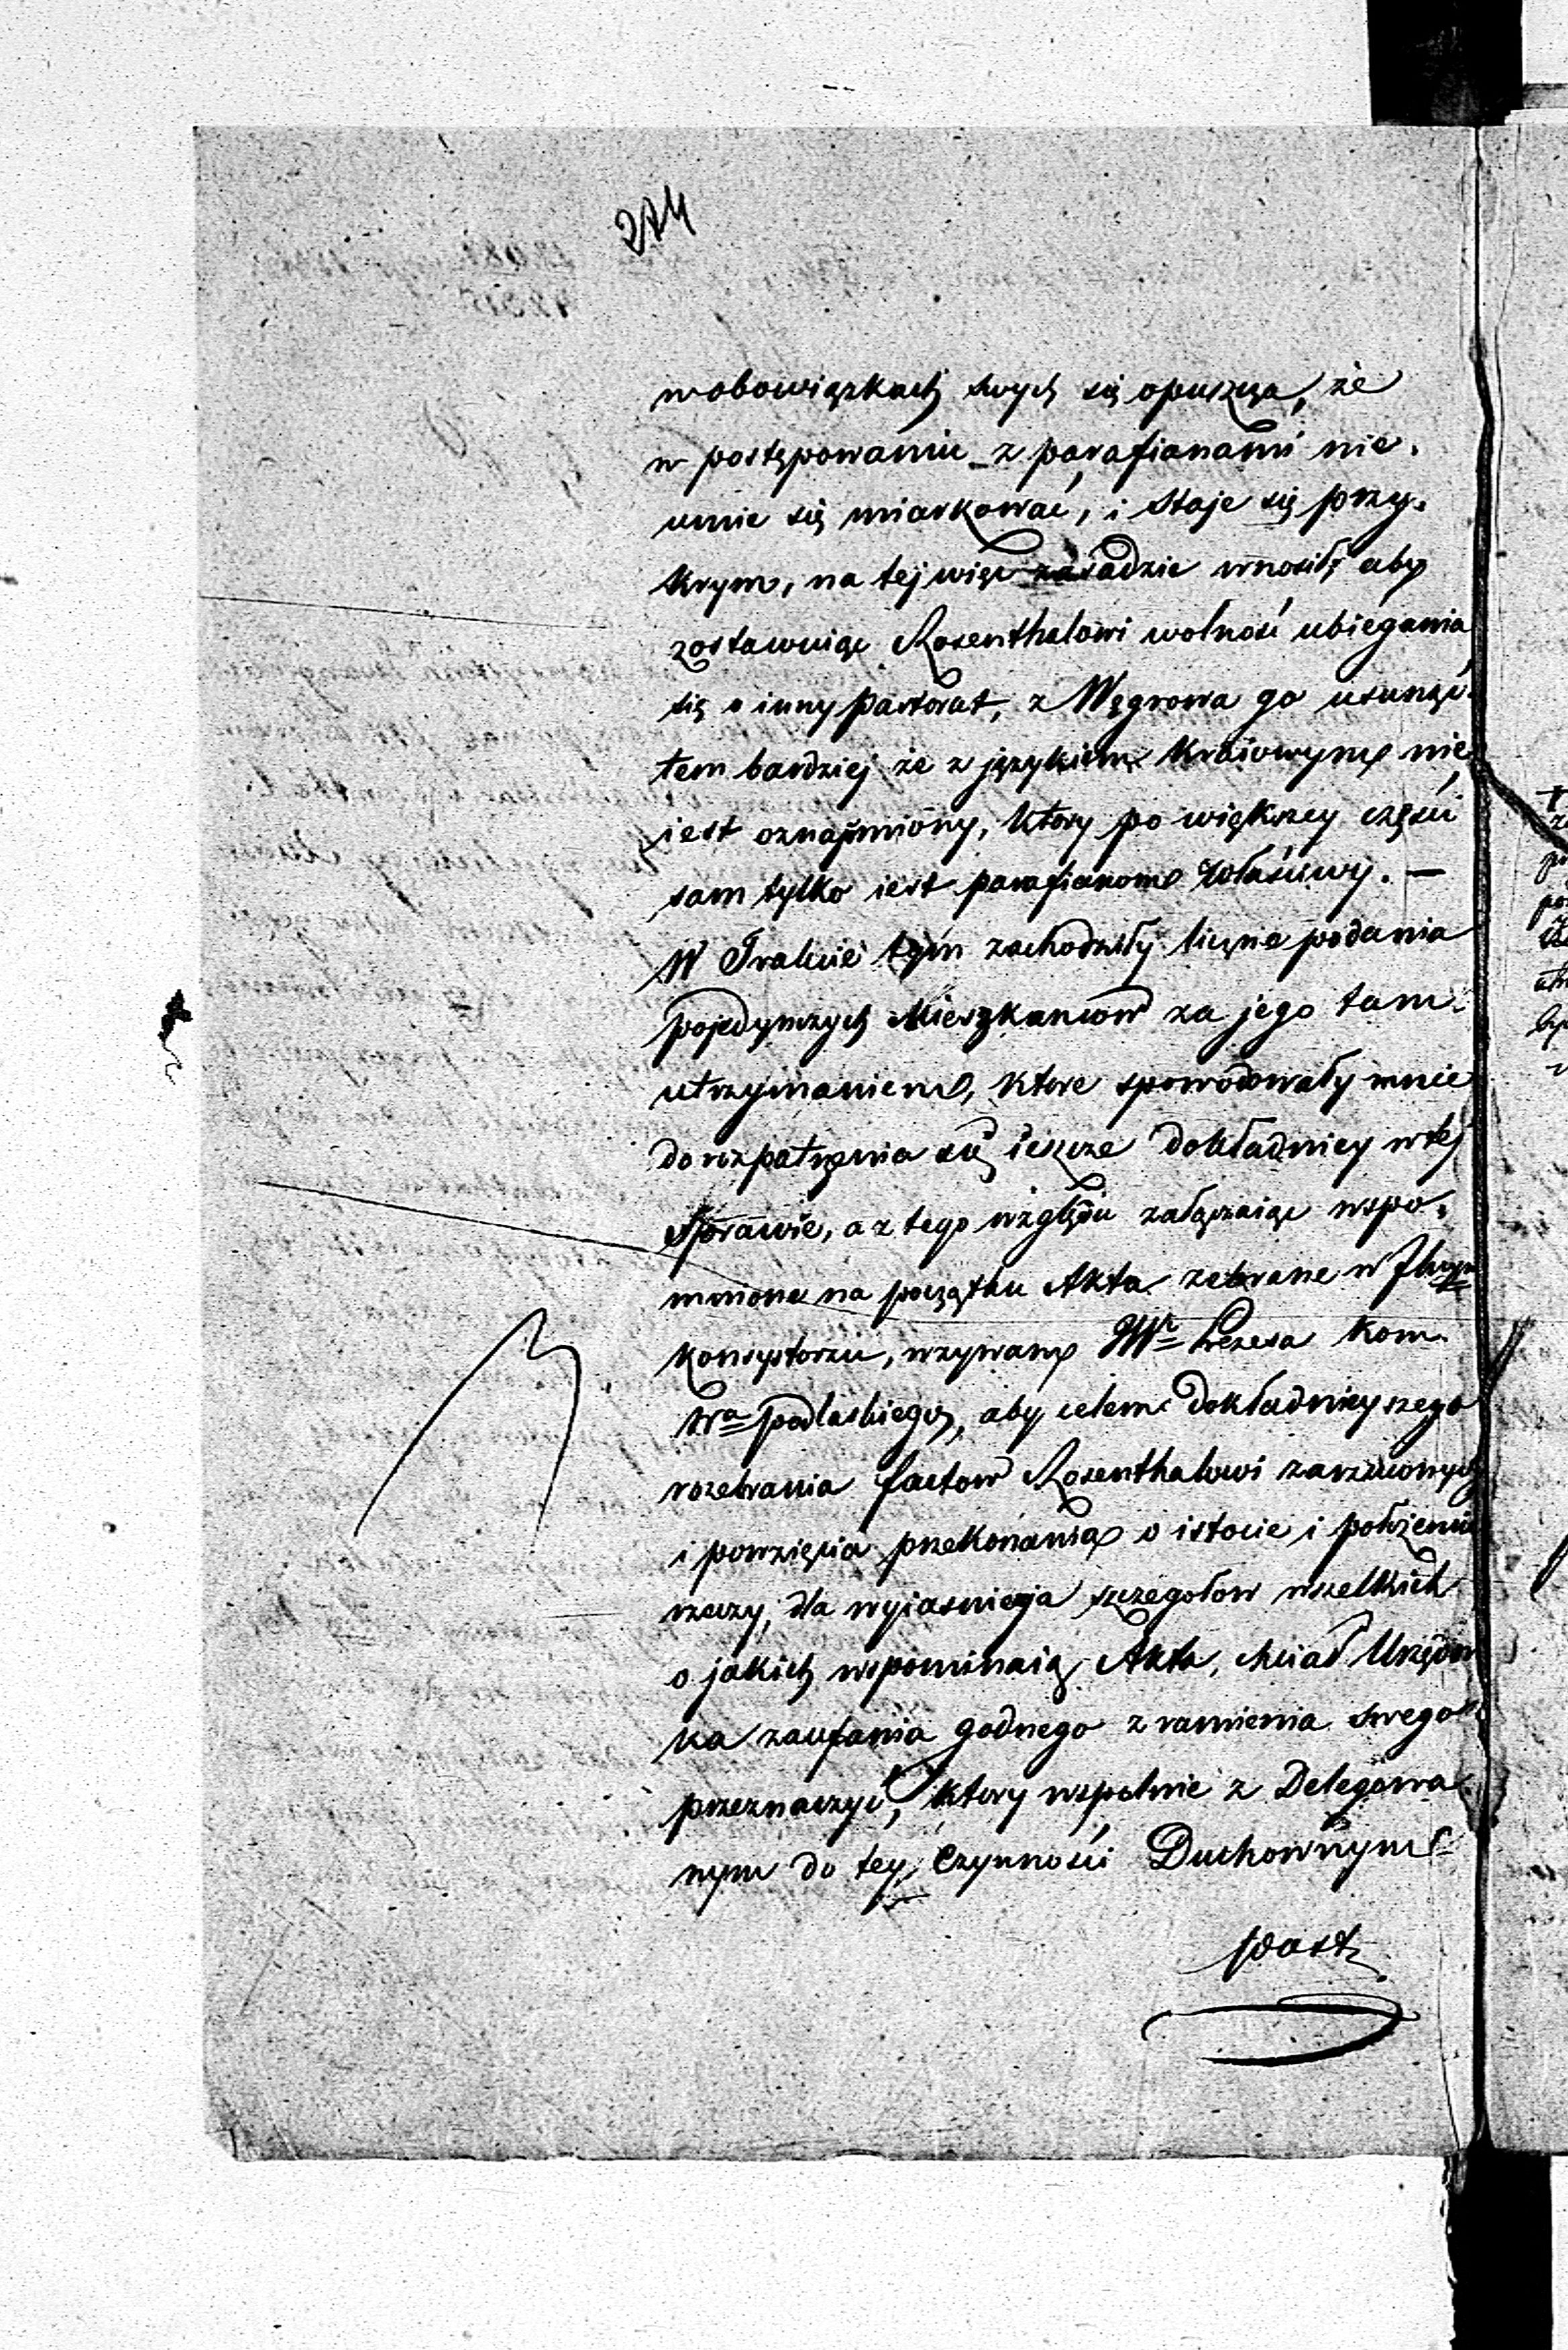 274
w obowiązkach swych się opuszcza, że
w postępowaniu z parafianami nie-
umie się miarkować, i staje się przy-
krym, na tej więc zasadzie wnosił, aby
zostawuiąc Rosenthalowi wolność ubiegania
się o inny pastorat, z Węgrowa go usunąć
tem bardziej że z językiem kraiowym nie
iest oznajmiony, który po większey części
sam tylko iest parafianom właściwy. —
W Trakcie tym zachodziły liczne podania
pojedynczych Mieszkancow za jego tam
utrzymaniem, ktore spowodowały mnie
do rozpatrzenia się ieszcze dokładniey w tej
Sprawie, a z tego względu załączaiąc wspo-
mnione na początku Akta zebrane w
Konsystorzu, wzywam JWo Prezesa Kom.
Wa Podlaskiego, aby celem dokładnieyszego
rozebrania factow Rosenthalowi zarzuconych
i powzięcia przekonania o istocie i położeniu
rzeczy, dla wyiasnienia szczegołow wszelkich
o jakich wspominaią Akta, chciał Urzędni
ka zaufania godnego z ramienia swego
przeznaczyć, ktory wspolnie z Delegowa
nym do tey Czynności Duchownym